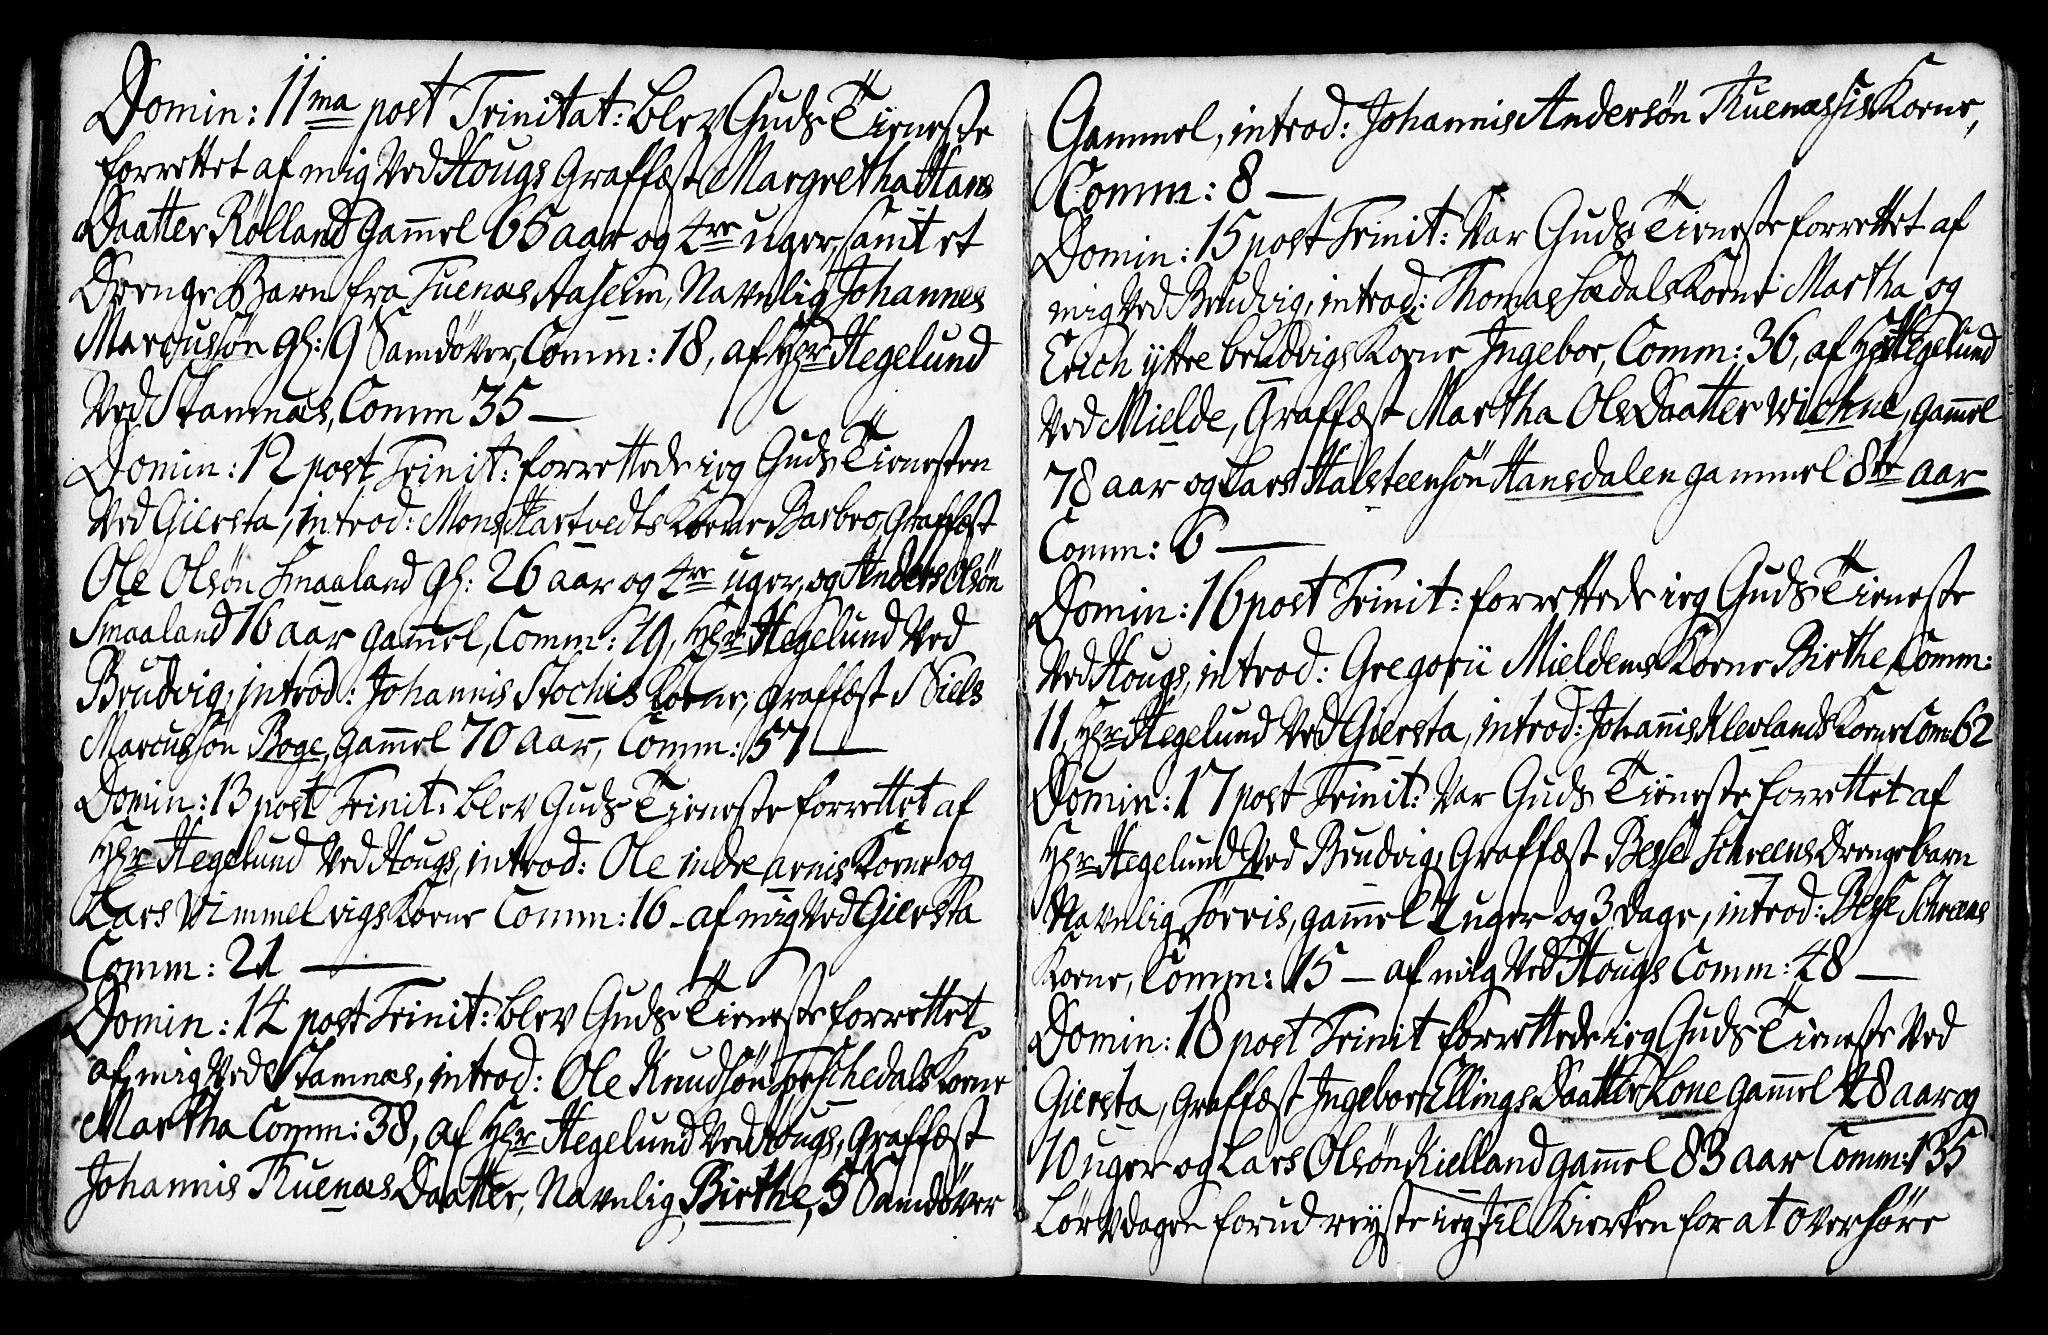 Domin: 11ma post Trinitat: blev Guds Tieneste
forrettet af mig Ved Hougs Graffæst Margretha Hans
Daatter Rølland Gam̄el 65 aar og 4re uger, samt et
Drenge Barn fra Tuenæs Aaseim, Navnlig Johannes
Marcussøn gl: 9 Samdøver, Comm: 18, af Hr Hegelund
Ved Stamnæs, Comm 35 —
Domin: 12 post Trinit: forrettede ieg Guds Tienesten
Ved Giersta, introd: Mons Hartvedts Kone Barbro, Graffæst
Ole Olsøn Smaaland gl: 26 aar og 4re uger, og Anders Olsøn
Smaaland 16 aar gam̄el, Comm: 29, Hr Hegelund Ved
Brudvig, introd: Johannis Stochis Kone, graffæst Niels
Marcussøn Boge, gam̄el 70 aar, Comm: 57 —
Domin: 13 post Trinit: blev Guds Tieneste forrettet af
Hr Hegelund Ved Hougs, introd: Ole indre arnis Kone og
Lars Vimmelvigs Kone Comm: 16 - af mig Ved Giersta
Comm: 21 —
Domin: 14 post Trinit: blev Guds Tieneste forrettet
af mig Ved Stamnæs, introd: Ole Knudsøn Kone
Martha Comm: 38, af Hr Hegelund Ved Hougs, Graffæst
Johannis Tuenæs Daatter, Navnlig Birthe, 5 Samdøver
Gammel, introd: Johannis Andersøn Tuenæssis Kone,
Comm: 8 —
Domin: 15 post Trinit: Var Guds Tieneste forrettet af
mig Ved Brudvig, introd: Thomas Sædals Kone Martha og
Erich yttre brudvigs Kone Ingebor, Comm: 36, af Hr Hegelund
Ved Mielde, Graffæst Martha Ols Daatter Wichne, gam̄el
78 aar og Lars Halsteensøn Hansdalen gammel 8te aar
Comm: 6 —
Domin: 16 post Trinit: forrettede ieg Guds Tieneste
Ved Hougs, introd: Gregorii Mieldens Kone Birthe, Comm:
11, Hr Hegelund Ved Giersta, introd: Johan̄is Klevlands Kone Com: 62
Domin: 17 post Trinit: Var Guds Tieneste forrettet af
Hr Hegelund Ved Brudvig, Graffæst Besse Schreens Drengebarn
Navnlig Tørris, gam̄el 2 uger og 3 Dage, introd: Besse Schreens
Kone, Comm: 15 — af mig Ved Hougs Comm: 48 —
Domin: 18 post Trinit forrettede ieg Guds Tieneste Ved
Giersta, Graffæst Ingebor Ellings Daatter Lone gam̄el 28 aar og
10 uger og Lars Olsøn Rielland gam̄el 83 aar Comm: 135
Løverdagen forud reyste ieg til Kierken for at overhøre